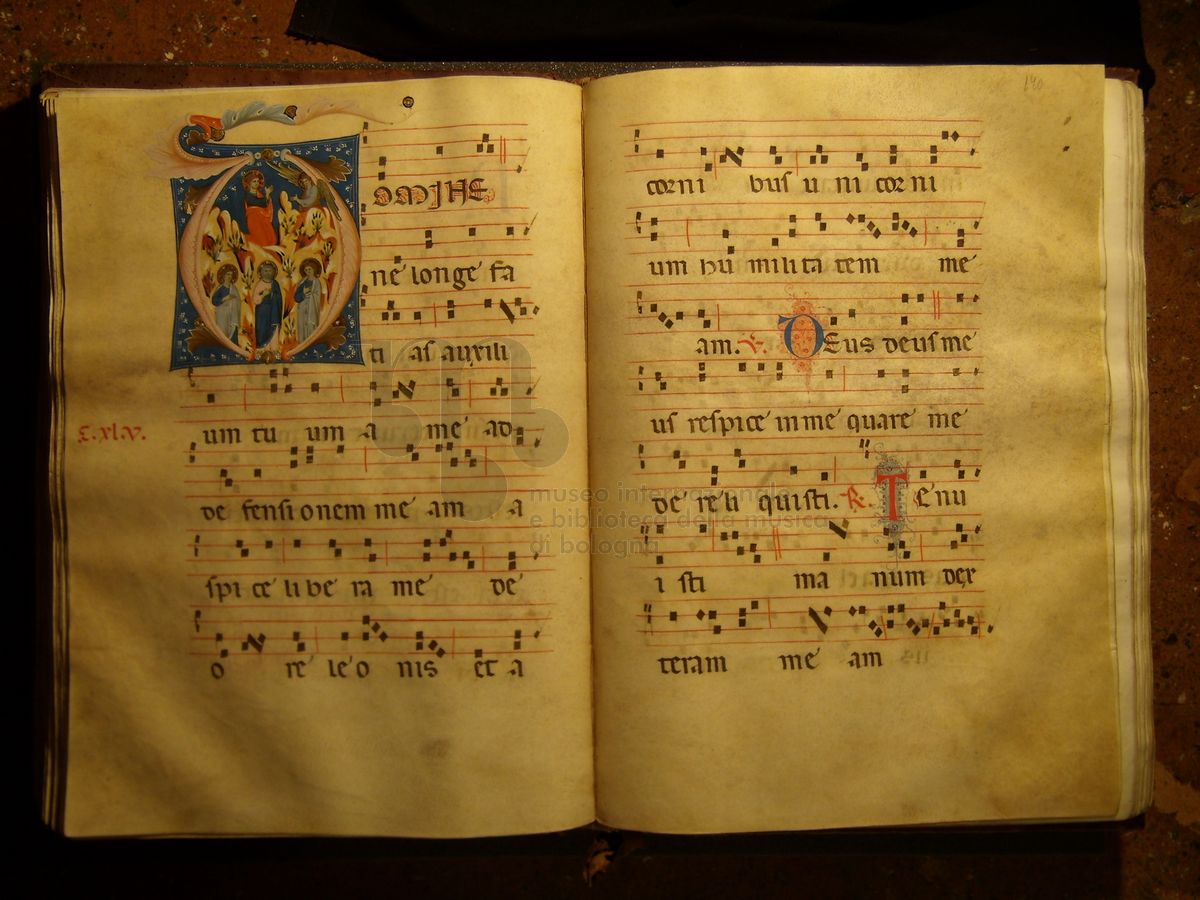 DOMINE
ne longe fa
ti as auxili
um tu um a me ad
de fensi onem me am a
spi ce li be ra me de
o re le o nis et a
C.xl.v.
140
cor ni bus u ni cor ni
um hu mili ta tem me
am. V. Deus deus me
us respice in me quare me
de re li quisti. R. Tenu
i sti ma num dex
teram me am
museo internazionale
e biblioteca della musica
di bologna